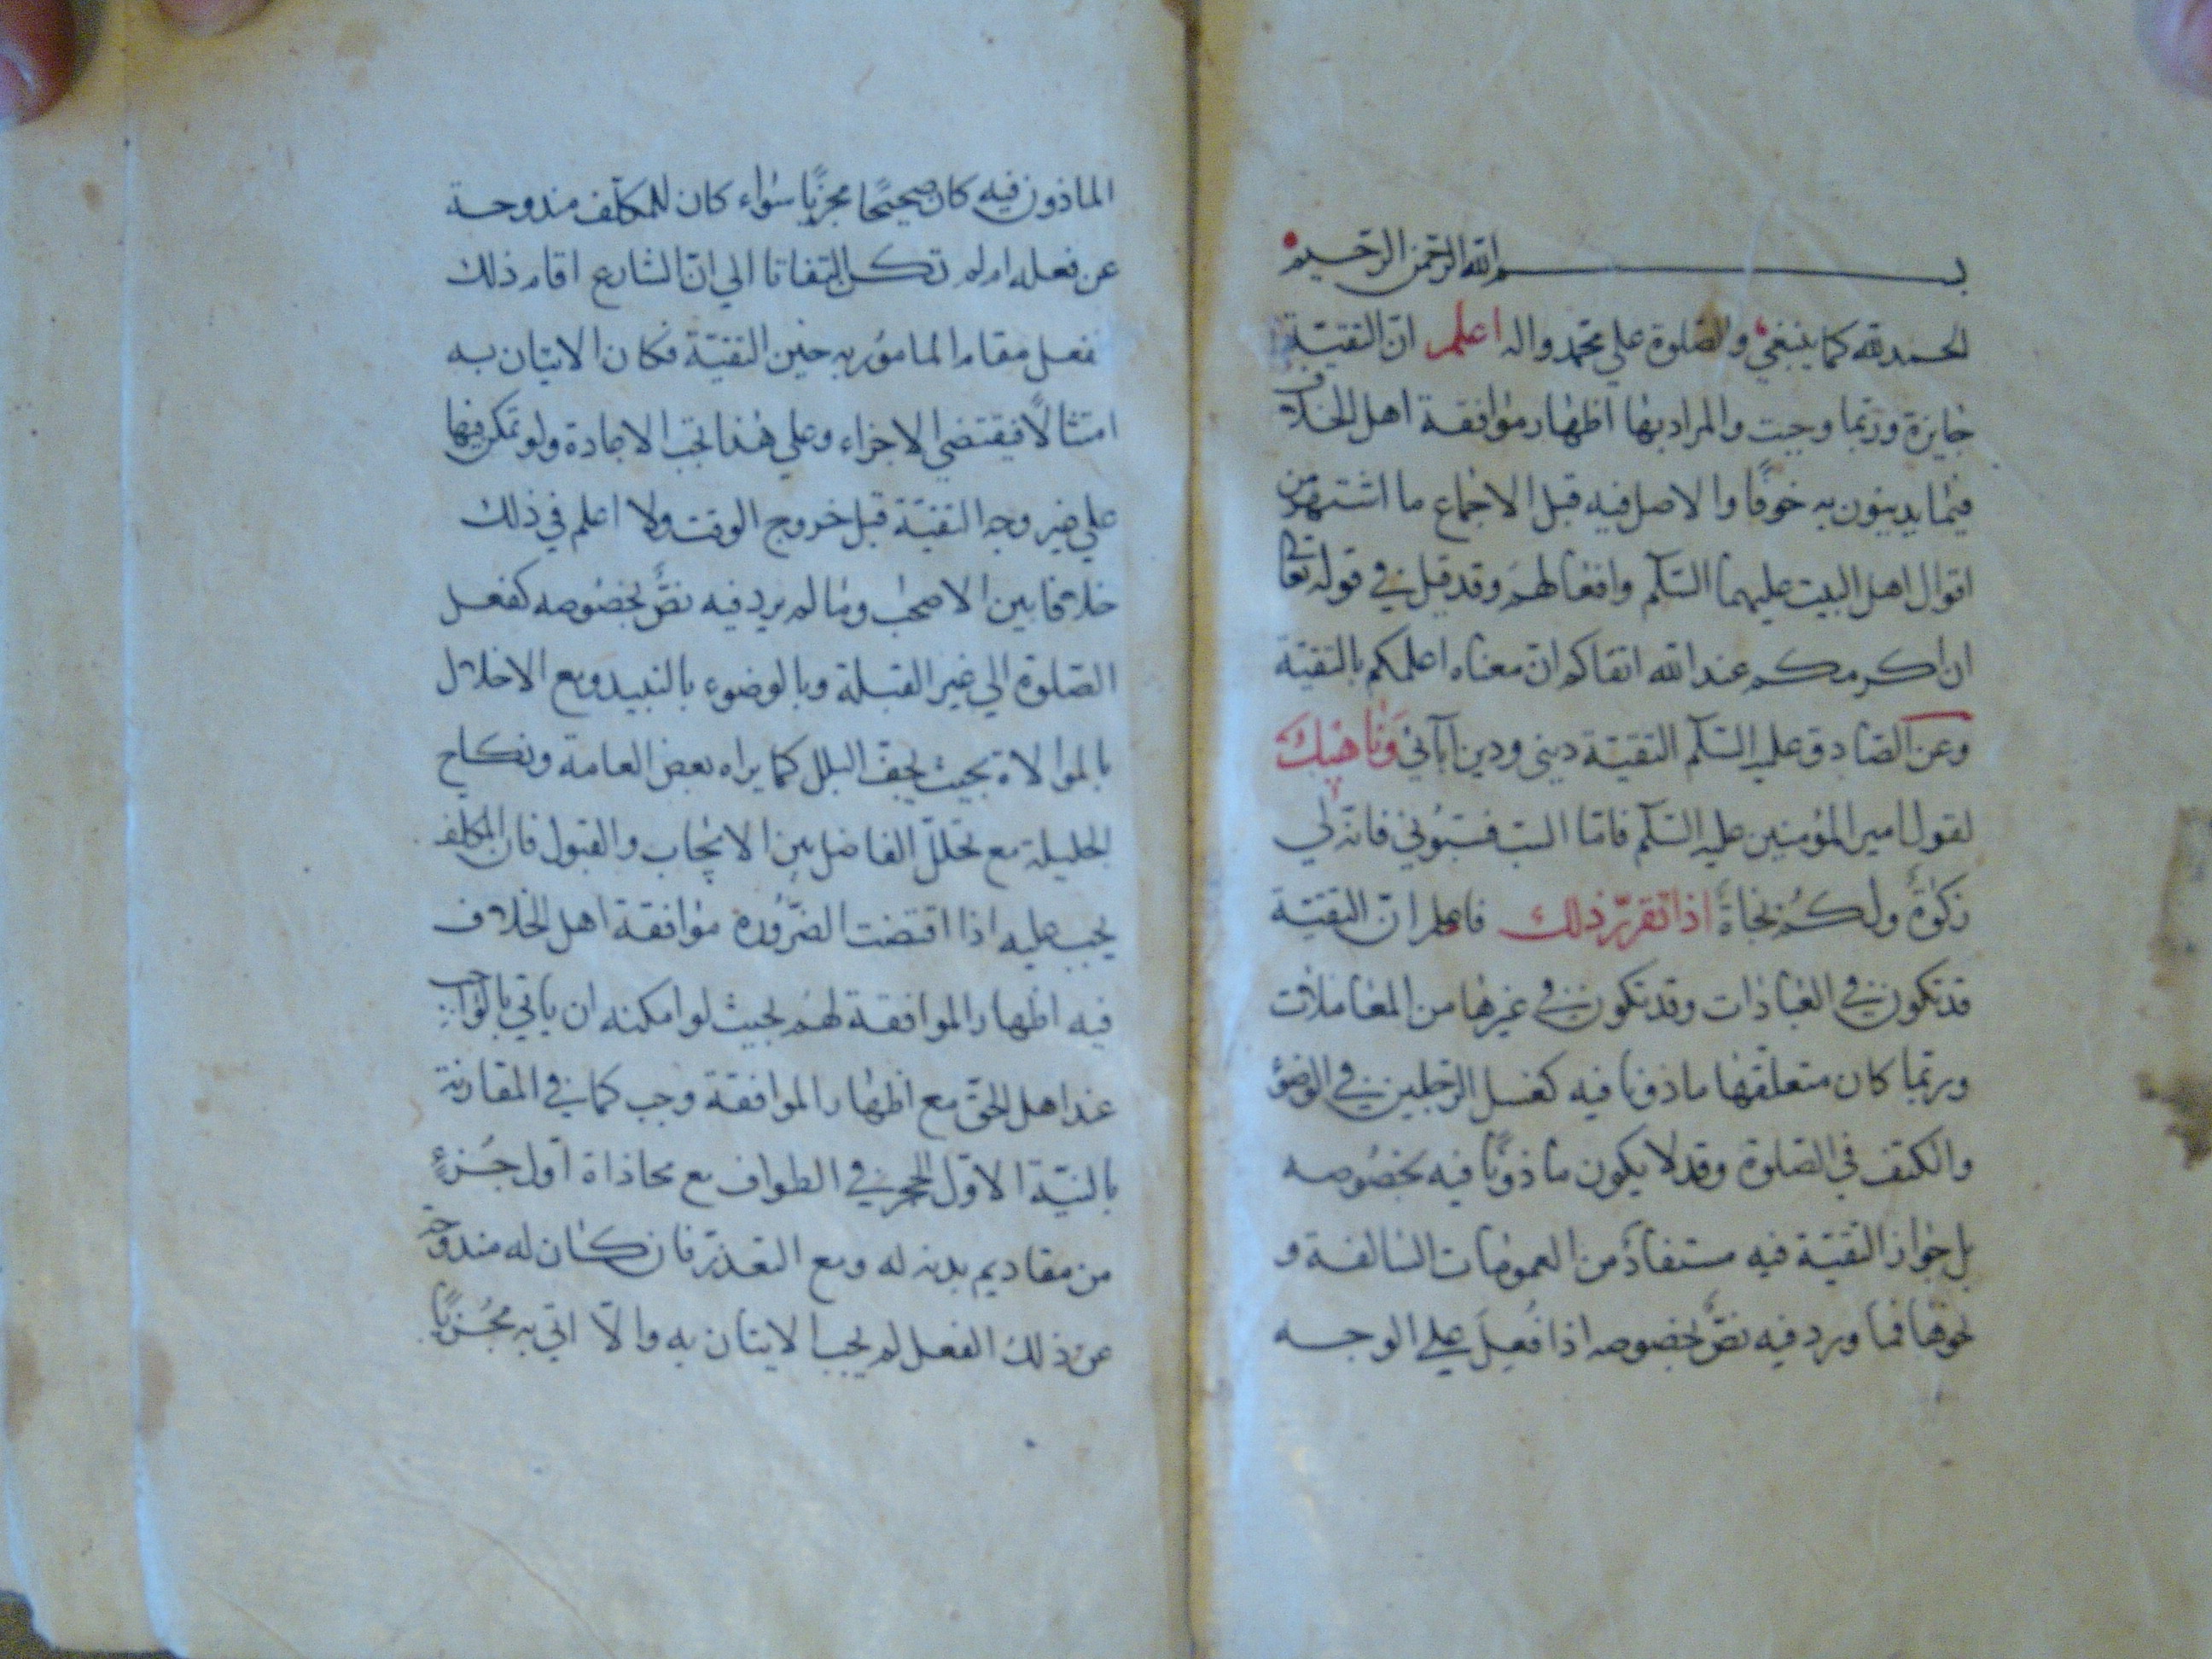 بسم الله الرحمن الرحيم
الحمد لله كما ينبغي والصلوة علي محمد واله اعلم ان التقيّة
جايزة وربّما وجبت والمراد بها اظهار موافقة اهل الخلاف
فيما يدينون به خوفًا والاصل فيه قبل الاجماع ما اشتهر من
اقوال اهل البيت عليهما السّلم وافعالهم وقد قيل في قوله تعالى
ان اكرمكم عند الله اتقاكم انّ معناه اعلمكم بالتقيّة
وعن الصّادق عليه السّلم التقيّة ديني ودين آبآئي وناهيك
لقول امير المؤمنين عليه السّلم فامّا السّب فسبّوني فانّه لي
زكوة ولكم نجاة اذا تقرّر ذلك فاعلم انّ التقيّة
قد تكون في العبادات وقد تكون في غيرها من المعاملات
وربّما كان متعلّقها ماذونا فيه كغسل الرّجلين في الوضوء
والكتف في الصّلوة وقد لا يكون ماذونًا فيه بخصوصه
بل جواز التقيّة فيه مستفاد من العمومات السّالفة و
نحوها فما ورد فيه نصٌّ بخصوصه اذا فُعِلَ علي الوجه
الماذون فيه كان صحيحًا مجزيًا سواء كان للمكلّف مندوحة
عن فعله ام لم تكن التفاتا الي انّ الشارع اقام ذلك
الفعل مقام المامور به حين التقيّة فكان الاتيان به
امتثالًا فيقتضي الاجزاء وعلي هذا تجب الاعادة ولو تمكّن فيها
علي غير وجه التقيّة قبل خروج الوقت ولا اعلم في ذلك
خلافا بين الاصحاب وما لم يرد فيه نصٌّ بخصوصه كفعل
الصّلوة الي غير القبلة وبالوضوء بالنبيذ ومع الاخلال
بالموالاة بحيث يجفّ البلل كما يراه بعض العامة ونكاح
الحليلة مع تخلّل الفاصل بين الايجاب والقبول فان المكلّف
يجب عليه اذا اقتضت الضّرورة موافقة اهل الخلاف
فيه اظهار الموافقة لهم بحيث لو امكنه ان ياتي بالواجب
عند اهل الحقّ مع اظهار الموافقة وجب كما في المقارنة
بالنيّة الاوّل الحجر في الطواف مع محاذاة اوّل جُزءٍ
من مقاديم بدنه له ومع التعذّر فان كان له مندوحة
عن ذلك الفعل لم يجب الاتيان به والّا اتي به مُجزيًا